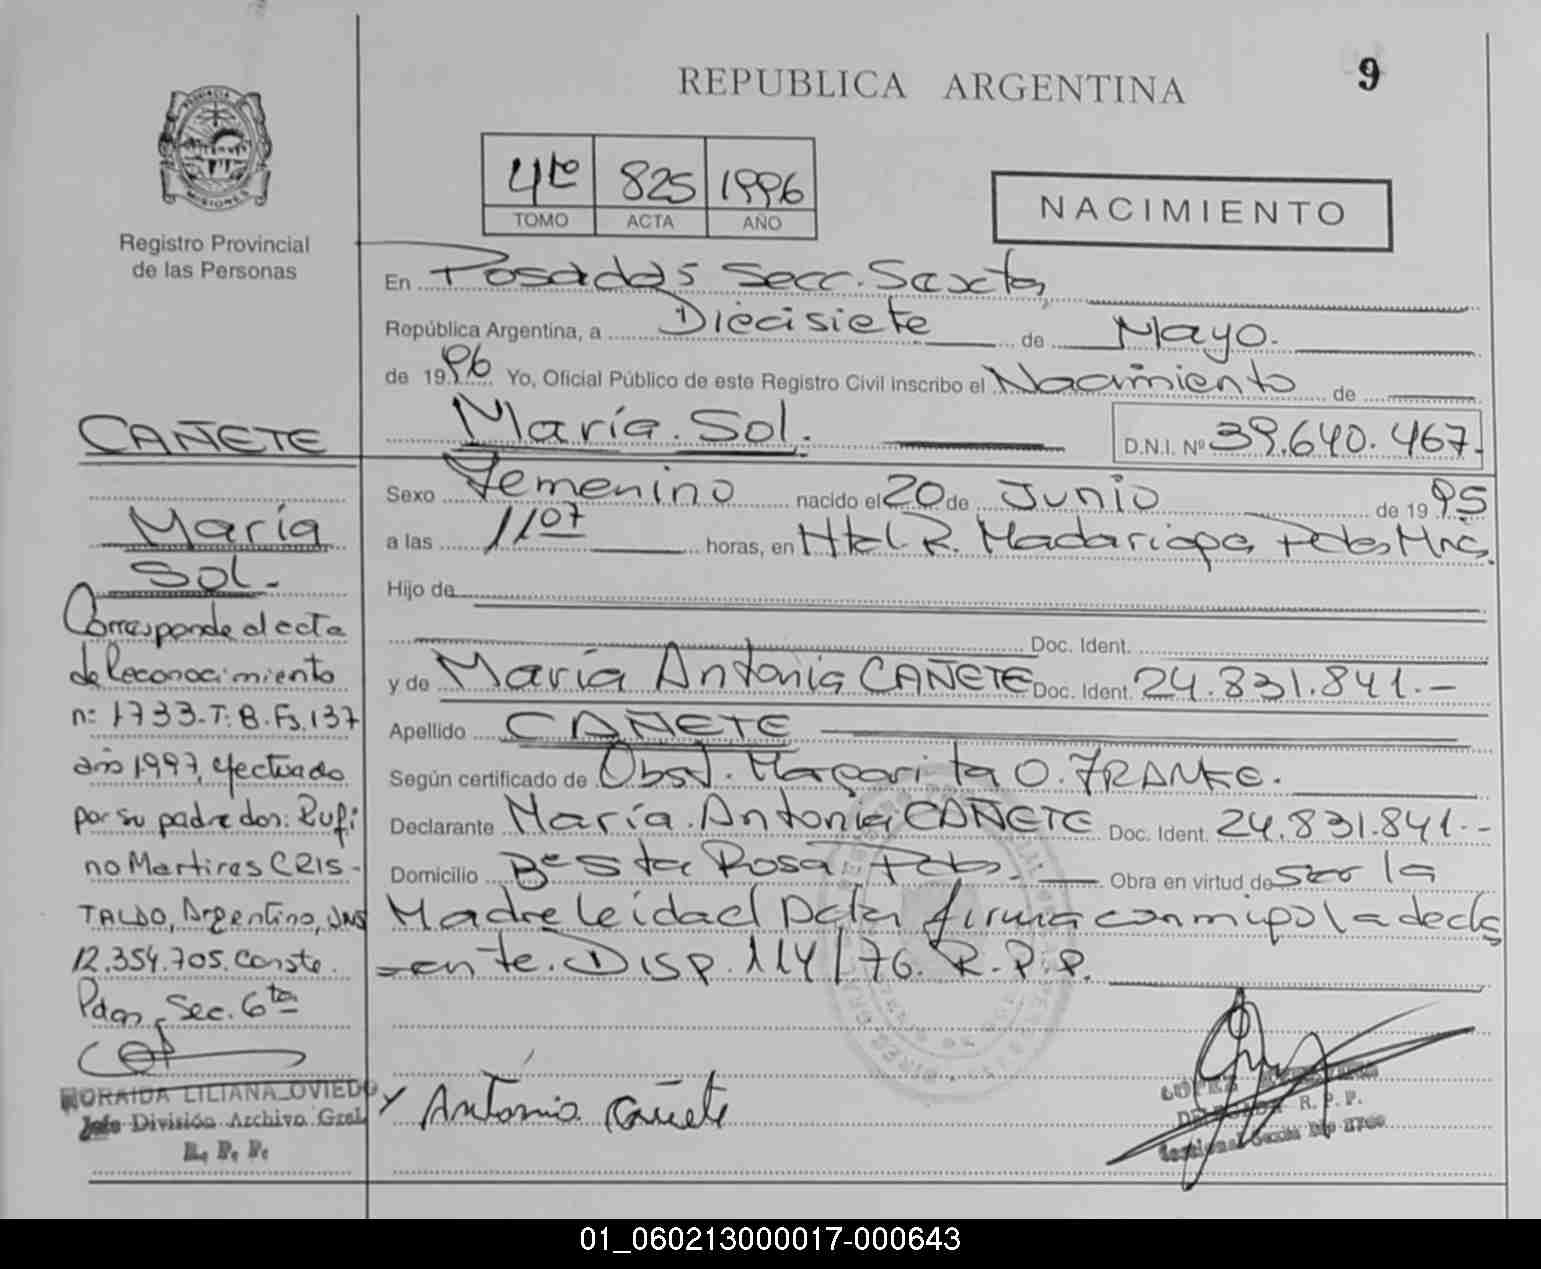 REPUBLICA ARGENTINA
9
PROVINCIA DE
MISIONES
Registro Provincial
de las Personas
4to 825 1996
TOMO ACTA AÑO
NACIMIENTO
En Posadas Secc. Sexta,
República Argentina, a Diecisiete de Mayo.
de 19 96 Yo, Oficial Público de este Registro Civil inscribo el Nacimiento de
María. Sol. D.N.I. Nº 39.640.467.-
Sexo Femenino nacido el 20 de Junio de 19 95
a las 11 07 horas, en Htal R. Madariaga Pdas Mnes.
Hijo de
Doc. Ident.
y de María Antonia CAÑETE Doc. Ident. 24.831.841.-
Apellido CAÑETE
Según certificado de Obst. Margarita O. FRANKE.
Declarante María. Antonia CAÑETE Doc. Ident. 24.831.841.-
Domicilio Bº Sta Rosa Pdas. Obra en virtud de ser la
Madre leida firma conmigo la decla
ente. Disp. 114/76. R.P.P.
CAÑETE
María
Sol.-
Corresponde al acta
de Reconocimiento
nº 1733-T:8.Fs.137
año 1997, efectuado
por su padre don: Rufi
no Martires CRIS-
TALDO, Argentino, DNI
12.354.705. Conste.
Pdas. Sec. 6ta
ZORAIDA LILIANA OVIEDO
Jefe División Archivo Gral
R. P. P.
Antonia Cañete
LOPEZ
R. P. P.
Seccional Sexta
01_060213000017-000643